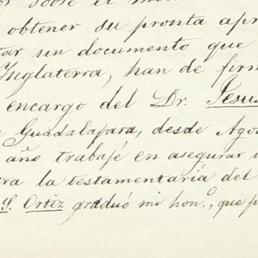 sobre el
obtener su pronta apr
tar un documento que
Inglaterra, han de firm
encargo del Dr. Jesus
Guadalajara, desde Ago
año trabajé en asegurar
tra la testamentaria del
S. Ortiz graduó mi hon.º, que